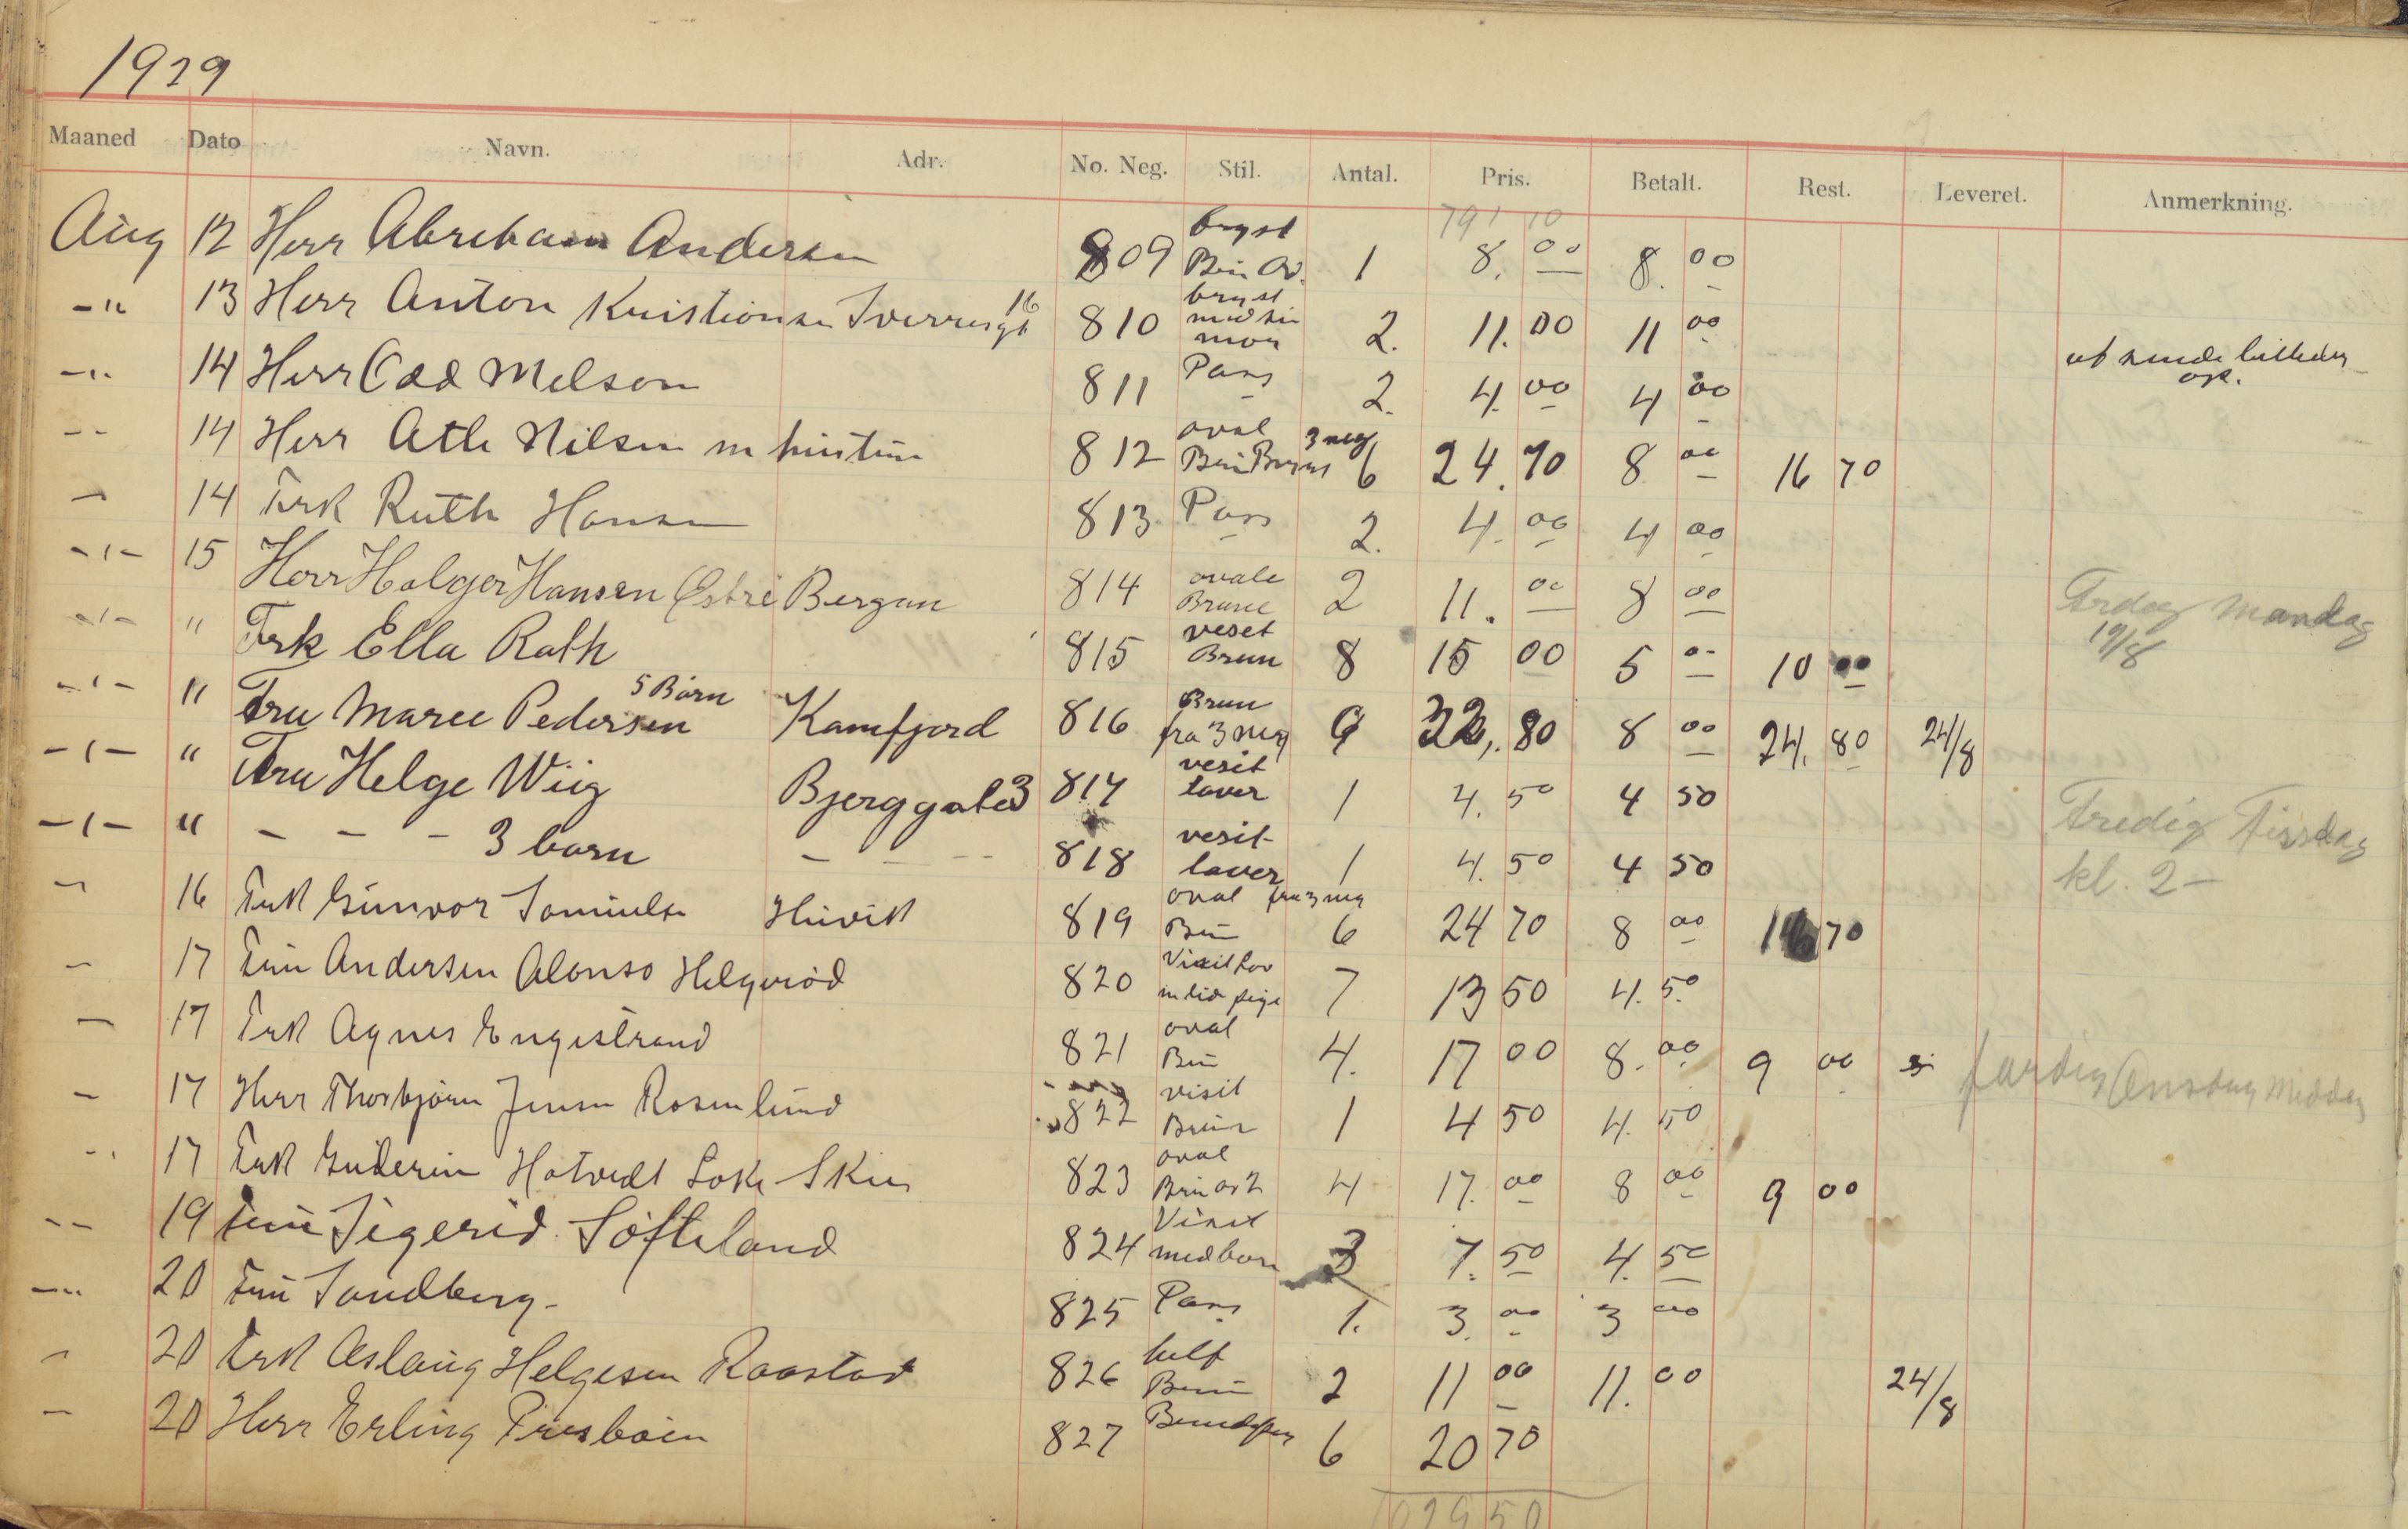 1929
Maaned Dato Navn. Adr. No. Neg. Stil. Antal. Pris. Betalt. Rest. Leveret. Anmerkning.
791 10
Aug 12 Herr Abreham Andersen 809 bryst Brun Ov. 1 8. 00 8. 00
-"- 13 Herr Anton Kristionsen Sverresgt 16 810 bryst med sin mor 2. 11. 00 11 00
-"- 14 Herr Odd Melsom 811 Pass 2. 4. 00 4 00 billeder
-- 14 Herr Atle Nilsen m hustru 812 oval Brun Bryst 3 neg 6 24. 70 8 00 16 70
- 14 Frk Ruth Hansen 813 Pass 2. 4. 00 4 00
-"- 15 Herr Holger Hansen Østre Bergan 814 ovale Brune 2 11. 00 8 00
-"- " Frk Ella Rath 815 veset Brun 8 15 00 5 00 10 00 mandag 19/8
-"- " Fru Maree Pedersen 5 Børn Kamfjord 816 Brun fra 3 neg 9 32,. 80 8 00 24. 80 24/8
-"- " Fru Helge Wiig Bjerggate 3 817 vesit laver 1 4. 50 4 50
-"- " - - - 3 barn - - - 818 vesit laver 1 4. 50 4 50 Fredig Tirsdag kl. 2-
- 16 Frk Gunvor Samuelsen Huvik 819 oval fra 3 neg Brun 6 24 70 8 00 16 70
- 17 Fru Andersen Alonso Helgerød 820 Visit lav m lid pige 7 13 50 4. 50
- 17 Frk Agnes Engestrand 821 oval Brun 4. 17 00 8. 00 9 00 færdig Onsdag Middag
- 17 Herr Thorbjørn Jensen Rosenlund 822 visit Brun 1 4 50 4. 50
-- 17 Frk Hotvedt Skien 823 oval Brun 4 17. 00 8 00 9 00
-- 19 Fru Sigerid Softeland 824 Visit med barn 3 7. 50 4. 50
-"- 20 Fru Sandberg- 825 Pass 1. 3. 00 3 00
- 20 Frk Aslaug Helgesen Raastad 826 helf Brun 2 11 00 11. 00 24/8
- 20 Herr Erling 827 6 20 70
1029 50